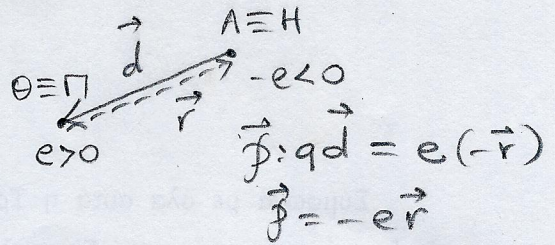 Λ≡Η
d⃗
Θ≡Π
-e<0
r⃗
e>0
p⃗:qd⃗ = e(-r⃗)
p⃗=-er⃗